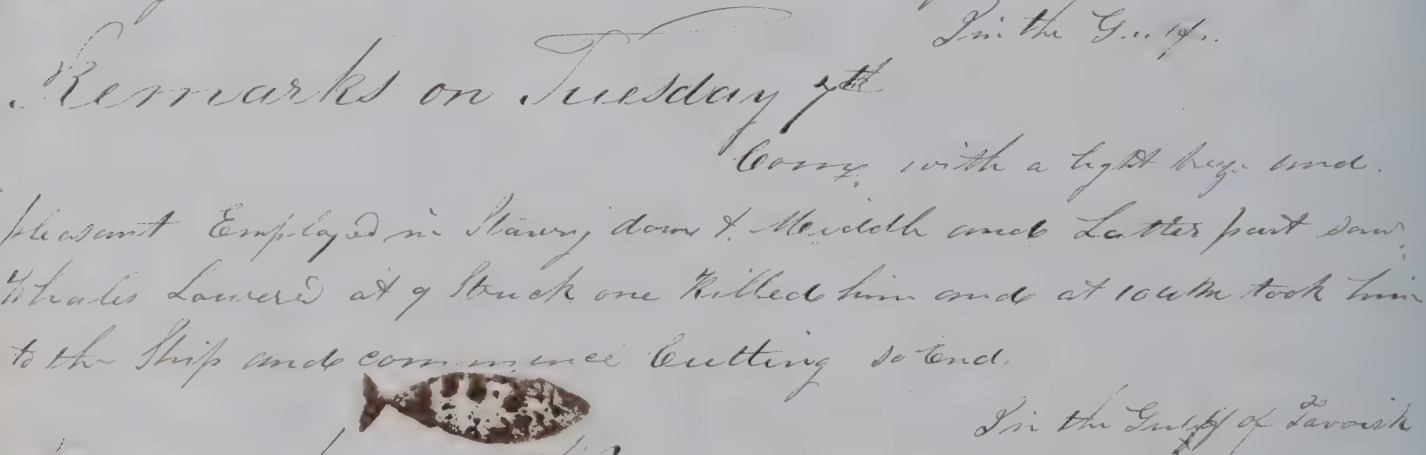 In the Gulf.
Remarks on Tuesday 7th
Comg. with a light breze and.
pleasant Employed in Stowing down & Middle and Latter part saw
Whales Lowered at 9 Struck one Killed him and at 10 took him
to the Ship and commence Cutting so End.
In the Gulf of